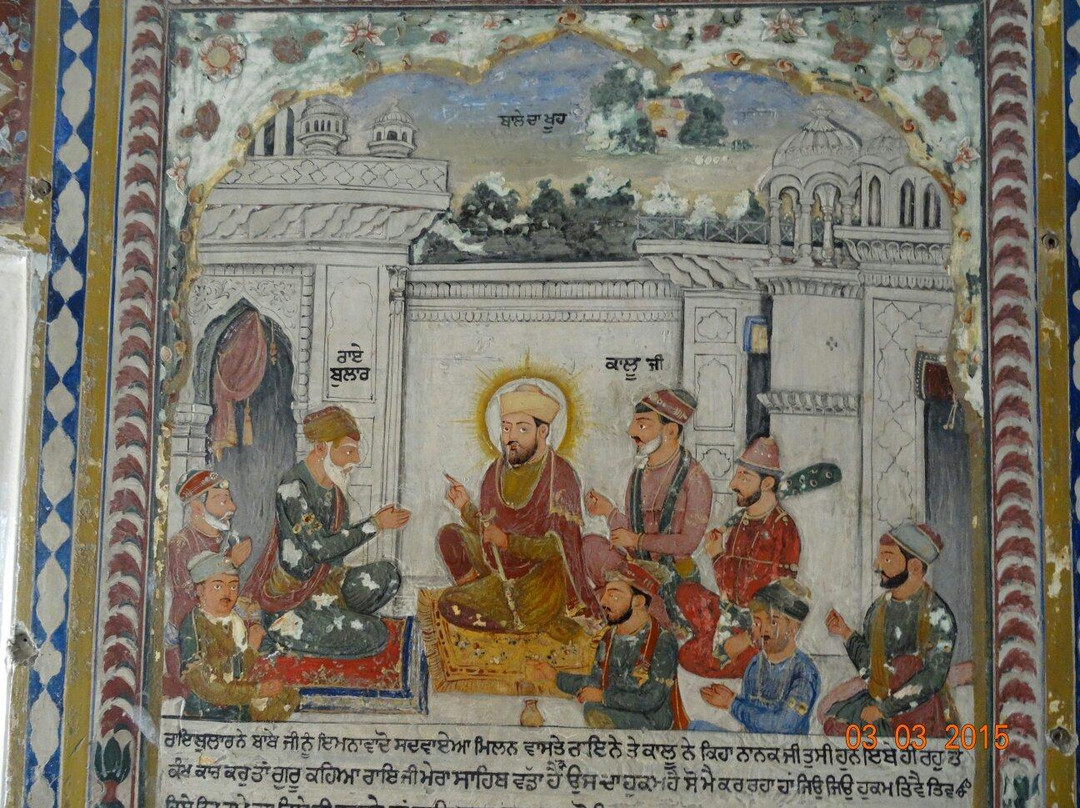 ਬਾਲੇ ਦਾ ਖੂਹ
ਰਾਏ
ਬੁਲਾਰ
ਕਾਲੂ ਜੀ
ਰਾਇ ਬੁਲਾਰ ਨੇ ਬਾਬੇ ਜੀ ਨੂੰ ਇਮਨਾਵਾਦੋ ਸਦਵਾਏਆ ਮਿਲਨ ਵਾਸਤੇ ਰਾਇ ਨੇ ਤੇ ਕਾਲੂ ਨੇ ਕਿਹਾ ਨਾਨਕ ਜੀ ਤੁਸੀ ਹੁਨ ਇਥੇ ਹੀ ਰਹੁ ਤੇ
ਕੰਮ ਕਾਰ ਕਰੁ ਤਾਂ ਗੁਰੂ ਕਹਿਆ ਰਾਇ ਜੀ ਮੇਰਾ ਸਾਹਿਬ ਵਡਾ ਹੈ ਉਸ ਦਾ ਹੁਕਮ ਹੈ ਸੋ ਮੈ ਕਰ ਰਹਾ ਹਾਂ ਜਿਉ ਜਿਉ ਹੁਕਮ ਤਿਵੈ ਤਿਵ
03 03 2015